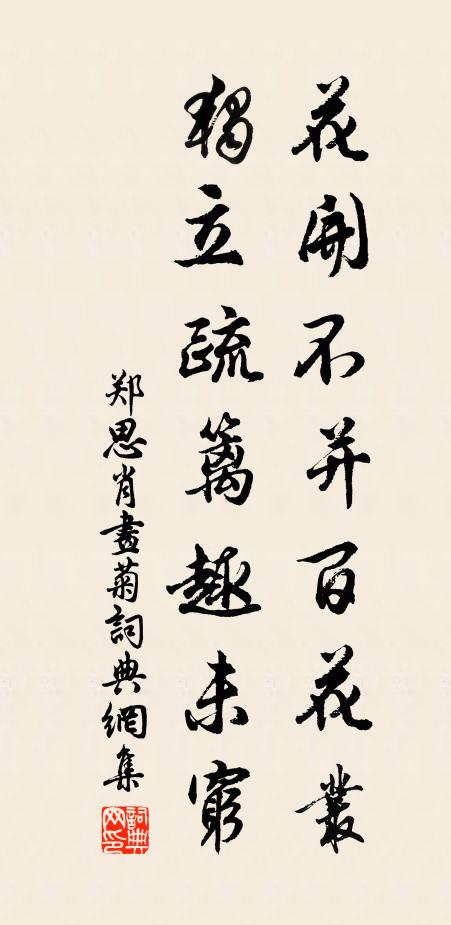 花開不并百花叢
獨立疏篱趣未窮
郑思肖畫菊詞典網集
詞典网印